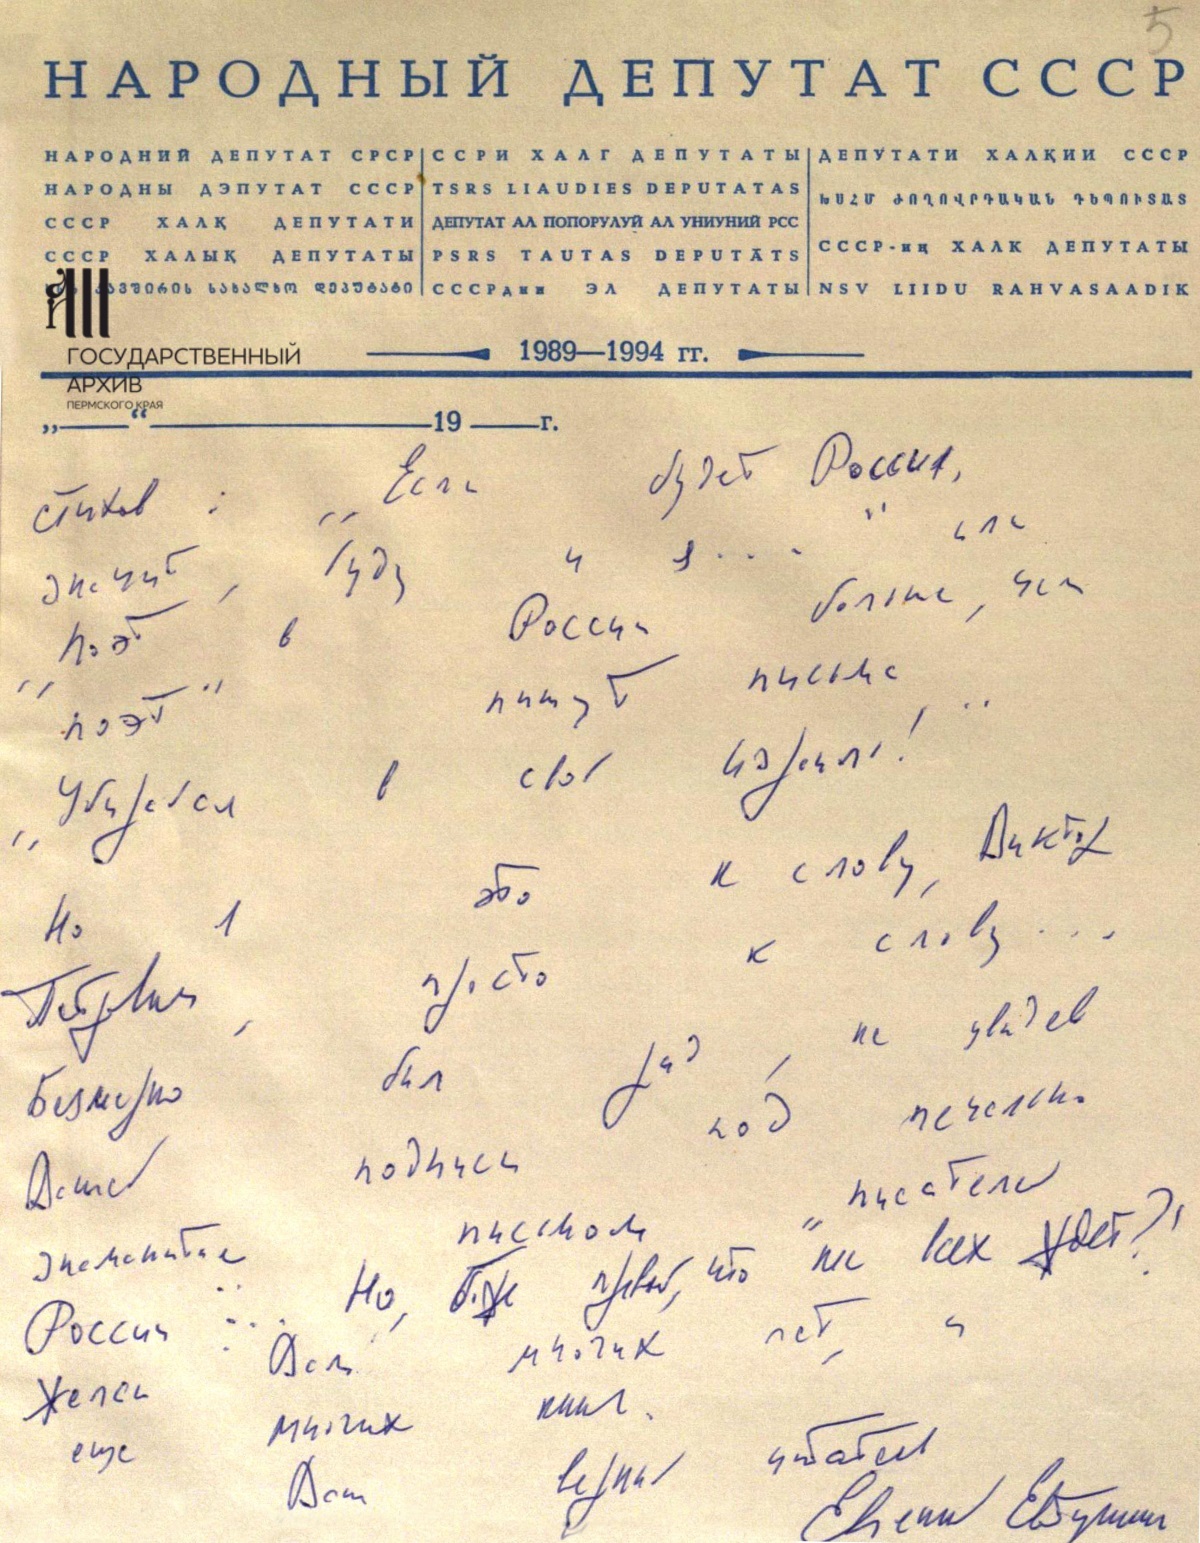 5
НАРОДНЫЙ ДЕПУТАТ СССР
НАРОДНИЙ ДЕПУТАТ СРСР
НАРОДНЫ ДЭПУТАТ СССР
СССР ХАЛҚ ДЕПУТАТИ
СССР ХАЛЫҚ ДЕПУТАТЫ
კავშირის სახალხო დეპუტატი
ССРИ ХАЛГ ДЕПУТАТЫ
TSRS LIAUDIES DEPUTATAS
ДЕПУТАТ АЛ ПОПОРУЛУЙ АЛ УНИУНИЙ РСС
PSRS TAUTAS DEPUTĀTS
СССРдин ЭЛ ДЕПУТАТЫ
ДЕПУТАТИ ХАЛҚИИ СССР
ԽՍՀՄ ԺՈՂՈՎՐԴԱԿԱՆ ԴԵՊՈՒՏԱՏ
СССР-иң ХАЛК ДЕПУТАТЫ
NSV LIIDU RAHVASAADIK
ГОСУДАРСТВЕННЫЙ
АРХИВ
ПЕРМСКОГО КРАЯ
1989—1994 гг.
„ “ 19 г.
стихов: „Если будет Россия,
значит, буду и я...." или
Поэт в России больше, чем
„поэт" пишут письма..
„Убирайся в свой Израиль!
Но я это к слову, Виктор
Петрович, просто к слову...
Безмерно был рад, не увидев
Вашей подписи под печально
знаменитым письмом „писателей
России"... Но, боже правый, что всех ждет?!
Желаю Вам многих лет, и
еще многих книг.
Ваш верный читатель
Евгений Евтушенко